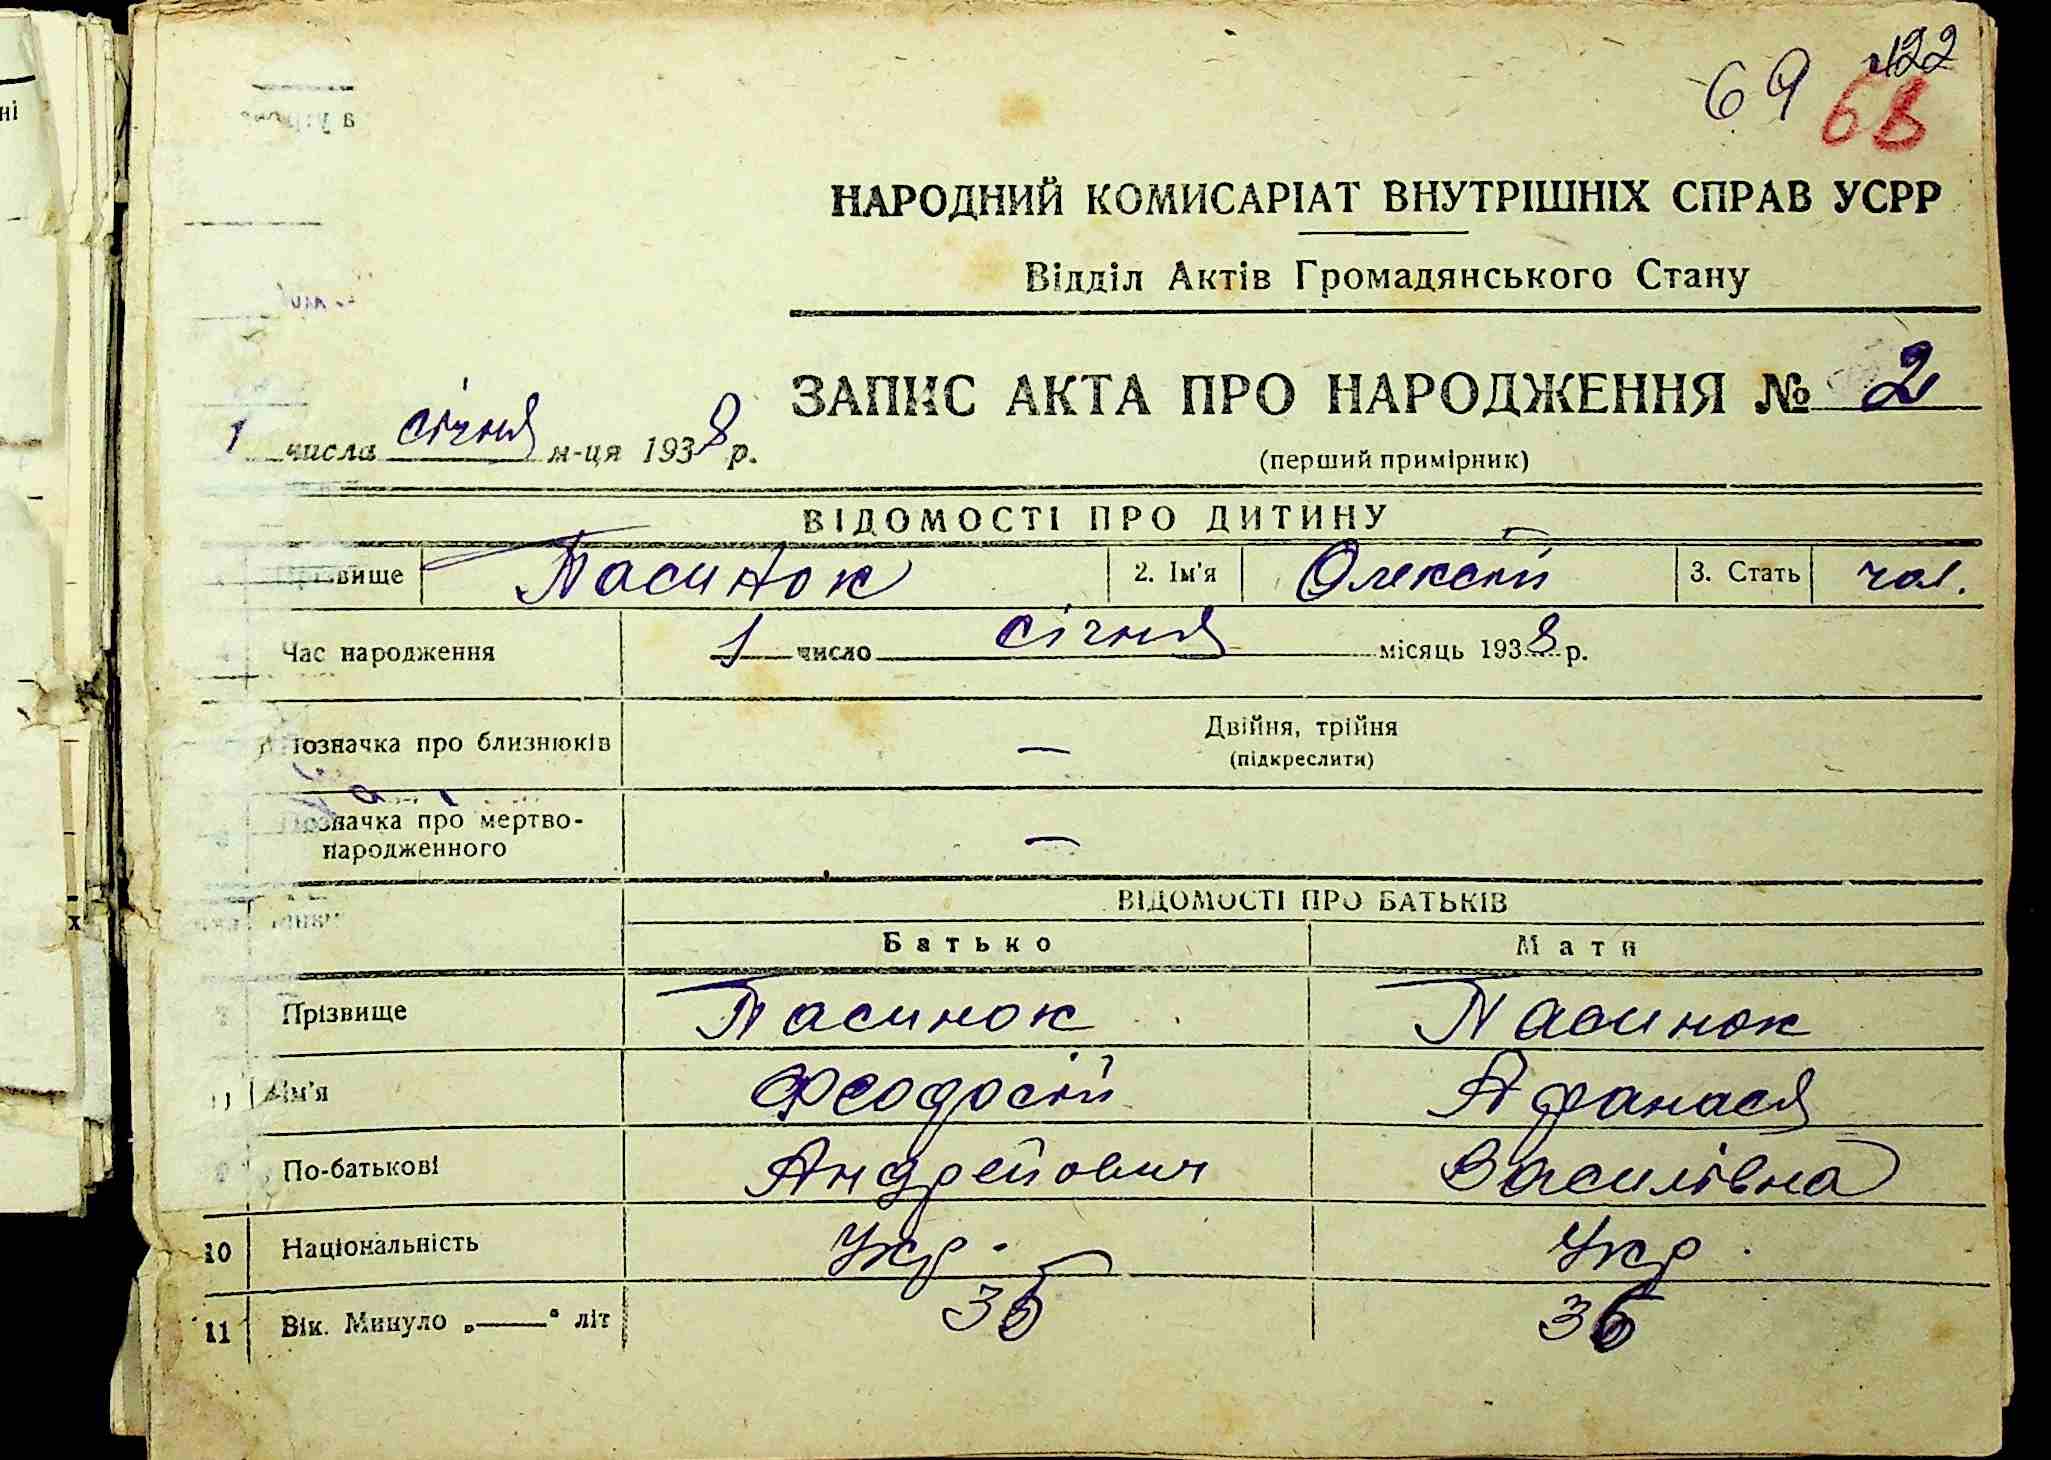 122
69 68
НАРОДНИЙ КОМИСАРІАТ ВНУТРІШНІХ СПРАВ УСРР
Відділ Актів Громадянського Стану
ЗАПИС АКТА ПРО НАРОДЖЕННЯ № 2
1 числа січня м-ця 1938 р.
(перший примірник)
ВІДОМОСТІ ПРО ДИТИНУ
Прізвище Пасинок 2. Ім'я Олексій 3. Стать чол.
Час народження 1 число січня місяць 1938 р.
Позначка про близнюків — Двійня, трійня
(підкреслити)
Позначка про мертво-
народженного —
ВІДОМОСТІ ПРО БАТЬКІВ
Батько Мати
Прізвище Пасинок Пасинок
Ім'я Феодосій Афанася
По-батькові Андрейович Василівна
10 Національність Укр. Укр.
11 Вік. Минуло „—" літ 35 36